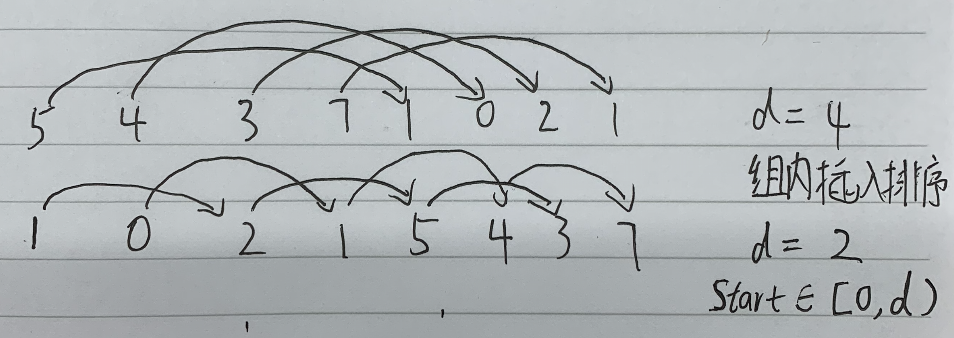 5 4 3 7 1 0 2 1
d = 4
组内插入排序
1 0 2 1 5 4 3 7
d = 2
Start ∈ [0,d)